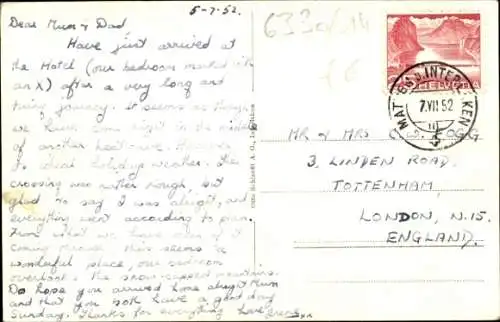 5-7-52.
Dear Mum & Dad
Have just arrived at
the Hotel (our bedroom marked with
an X) after a very long and
tiring journey. It seems as though
we have come right in the middle
of another heat-wave.
ideal holiday weather. The
crossing was rather rough, but
glad to say I was alright, and
everything went according to plan.
From what we have seen of it
coming through this seems a
wonderful place, our bedroom
overlooks the snow-capped mountains.
Do hope you arrived home alright Mum
and that you both have a good day
Sunday. Thanks for everything love
xx
HELVETIA
INTERLAKEN
7.VII 52
MR & MRS C. W. OGG
3, LINDEN ROAD,
TOTTENHAM,
LONDON, N.15.
ENGLAND.